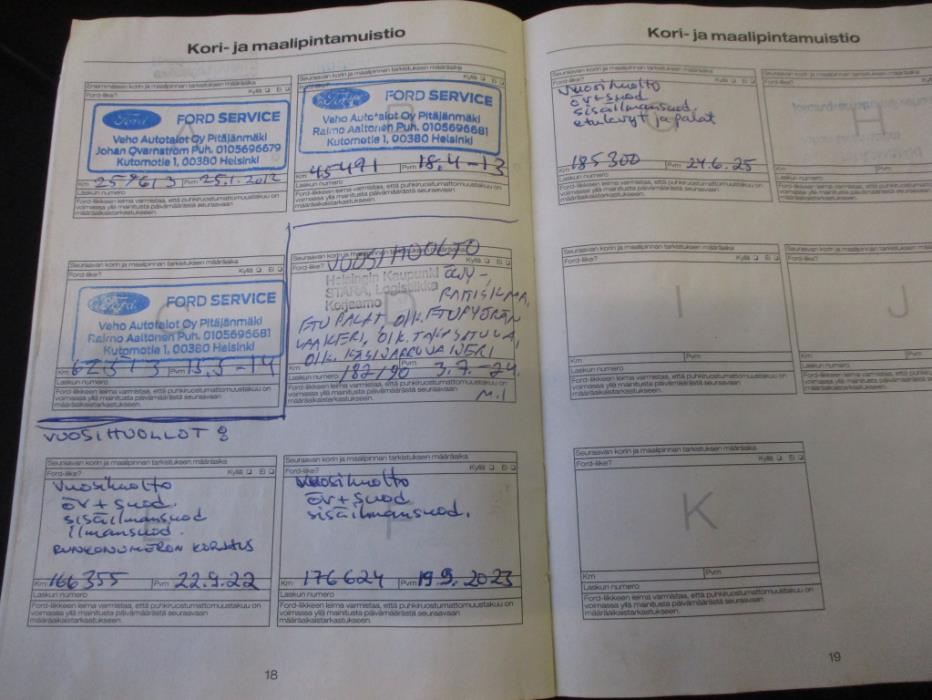 Kori- ja maalipintamuistio
Ensimmäisen korin ja maalipinnan tarkistuksen määräaika
Ford-liike?
Kyllä ❏ Ei ❏
A
Ford
FORD SERVICE
Veho Autotalot Oy Pitäjänmäki
Johan Qvarnström Puh. 0105696679
Kutomotie 1, 00380 Helsinki
Km
Pvm 25.1.2012
Laskun numero
Ford-liikkeen leima varmistaa, että puhkiruostumattomuustakuu on
voimassa yllä mainitusta päivämäärästä seuraavaan
määräaikaistarkastukseen.
Seuraavan korin ja maalipinnan tarkistuksen määräaika
Kyllä ❏ Ei ❏
Ford
FORD SERVICE
Veho Autotalot Oy Pitäjänmäki
Raimo Aaltonen Puh. 0105696681
Kutomotie 1, 00380 Helsinki
Km 45491 Pvm 18.4-13
Laskun numero
Ford-liikkeen leima varmistaa, että puhkiruostumattomuustakuu on
voimassa yllä mainitusta päivämäärästä seuraavaan
määräaikaistarkastukseen.
Seuraavan korin ja maalipinnan tarkistuksen määräaika
Ford-liike?
Kyllä ❏ Ei ❏
C
Ford
FORD SERVICE
Veho Autotalot Oy Pitäjänmäki
Raimo Aaltonen Puh. 0105696681
Kutomotie 1, 00380 Helsinki
Km Pvm 13.5-14
Laskun numero
Ford-liikkeen leima varmistaa, että puhkiruostumattomuustakuu on
voimassa yllä mainitusta päivämäärästä seuraavaan
määräaikaistarkastukseen.
Seuraavan korin ja maalipinnan tarkistuksen määräaika
Ford-liike?
Kyllä ❏ Ei ❏
D
VUOSIHUOLTO
Helsingin Kaupunki
STARA, Logistiikka
Korjaamo
ÖLJY-,
RAITISILMA,
ETUPALAT, OIK. ETUPYÖRÄN
LAAKERI, OIK. TUKISITULA,
OIK. KÄSIJARRUVAIJERI
Km Pvm
Laskun numero 182190 3.7.-24.
M.I
Ford-liikkeen leima varmistaa, että puhkiruostumattomuustakuu on
voimassa yllä mainitusta päivämäärästä seuraavaan
määräaikaistarkastukseen.
VUOSIHUOLLOT :
Seuraavan korin ja maalipinnan tarkistuksen määräaika
Ford-liike?
Kyllä ❏ Ei ❏
E
Vuosihuolto
öv + suod.
sisäilmansuod
ilmansuod.
RUNKONUMERON KORJAUS
Km 166355 Pvm 22.9.22
Laskun numero
Ford-liikkeen leima varmistaa, että puhkiruostumattomuustakuu on
voimassa yllä mainitusta päivämäärästä seuraavaan
määräaikaistarkastukseen.
Seuraavan korin ja maalipinnan tarkistuksen määräaika
Ford-liike?
Kyllä ❏ Ei ❏
F
Vuosihuolto
öv + suod.
sisäilmansuod.
Km 176624 Pvm 19.9.2023
Laskun numero
Ford-liikkeen leima varmistaa, että puhkiruostumattomuustakuu on
voimassa yllä mainitusta päivämäärästä seuraavaan
määräaikaistarkastukseen.
18
Kori- ja maalipintamuistio
Seuraavan korin ja maalipinnan tarkistuksen määräaika
Ford-liike?
Kyllä ❏ Ei ❏
G
Vuosihuolto
öv + suod
sisäilmansuod.
etulevyt ja palat
185300 24.6.25
Km Pvm
Laskun numero
Ford-liikkeen leima varmistaa, että puhkiruostumattomuustakuu on
voimassa yllä mainitusta päivämäärästä seuraavaan
määräaikaistarkastukseen.
Seuraavan korin ja maalipinnan tarkistuksen
Ford-liike?
H
Km Pvm
Laskun numero
Ford-liikkeen leima varmistaa, että puhkiruostumattomuustakuu
voimassa yllä mainitusta päivämäärästä seuraavaan
määräaikaistarkastukseen.
Seuraavan korin ja maalipinnan tarkistuksen määräaika
Ford-liike?
Kyllä ❏ Ei ❏
I
Km Pvm
Laskun numero
Ford-liikkeen leima varmistaa, että puhkiruostumattomuustakuu on
voimassa yllä mainitusta päivämäärästä seuraavaan
määräaikaistarkastukseen.
Seuraavan korin ja maalipinnan tarkistuksen
Ford-liike?
J
Km Pvm
Laskun numero
Ford-liikkeen leima varmistaa, että
voimassa yllä mainitusta päivämäärästä seuraavaan
määräaikaistarkastukseen.
Seuraavan korin ja maalipinnan tarkistuksen määräaika
Ford-liike?
Kyllä ❏ Ei ❏
K
Km Pvm
Laskun numero
Ford-liikkeen leima varmistaa, että puhkiruostumattomuustakuu on
voimassa yllä mainitusta päivämäärästä seuraavaan
määräaikaistarkastukseen.
19